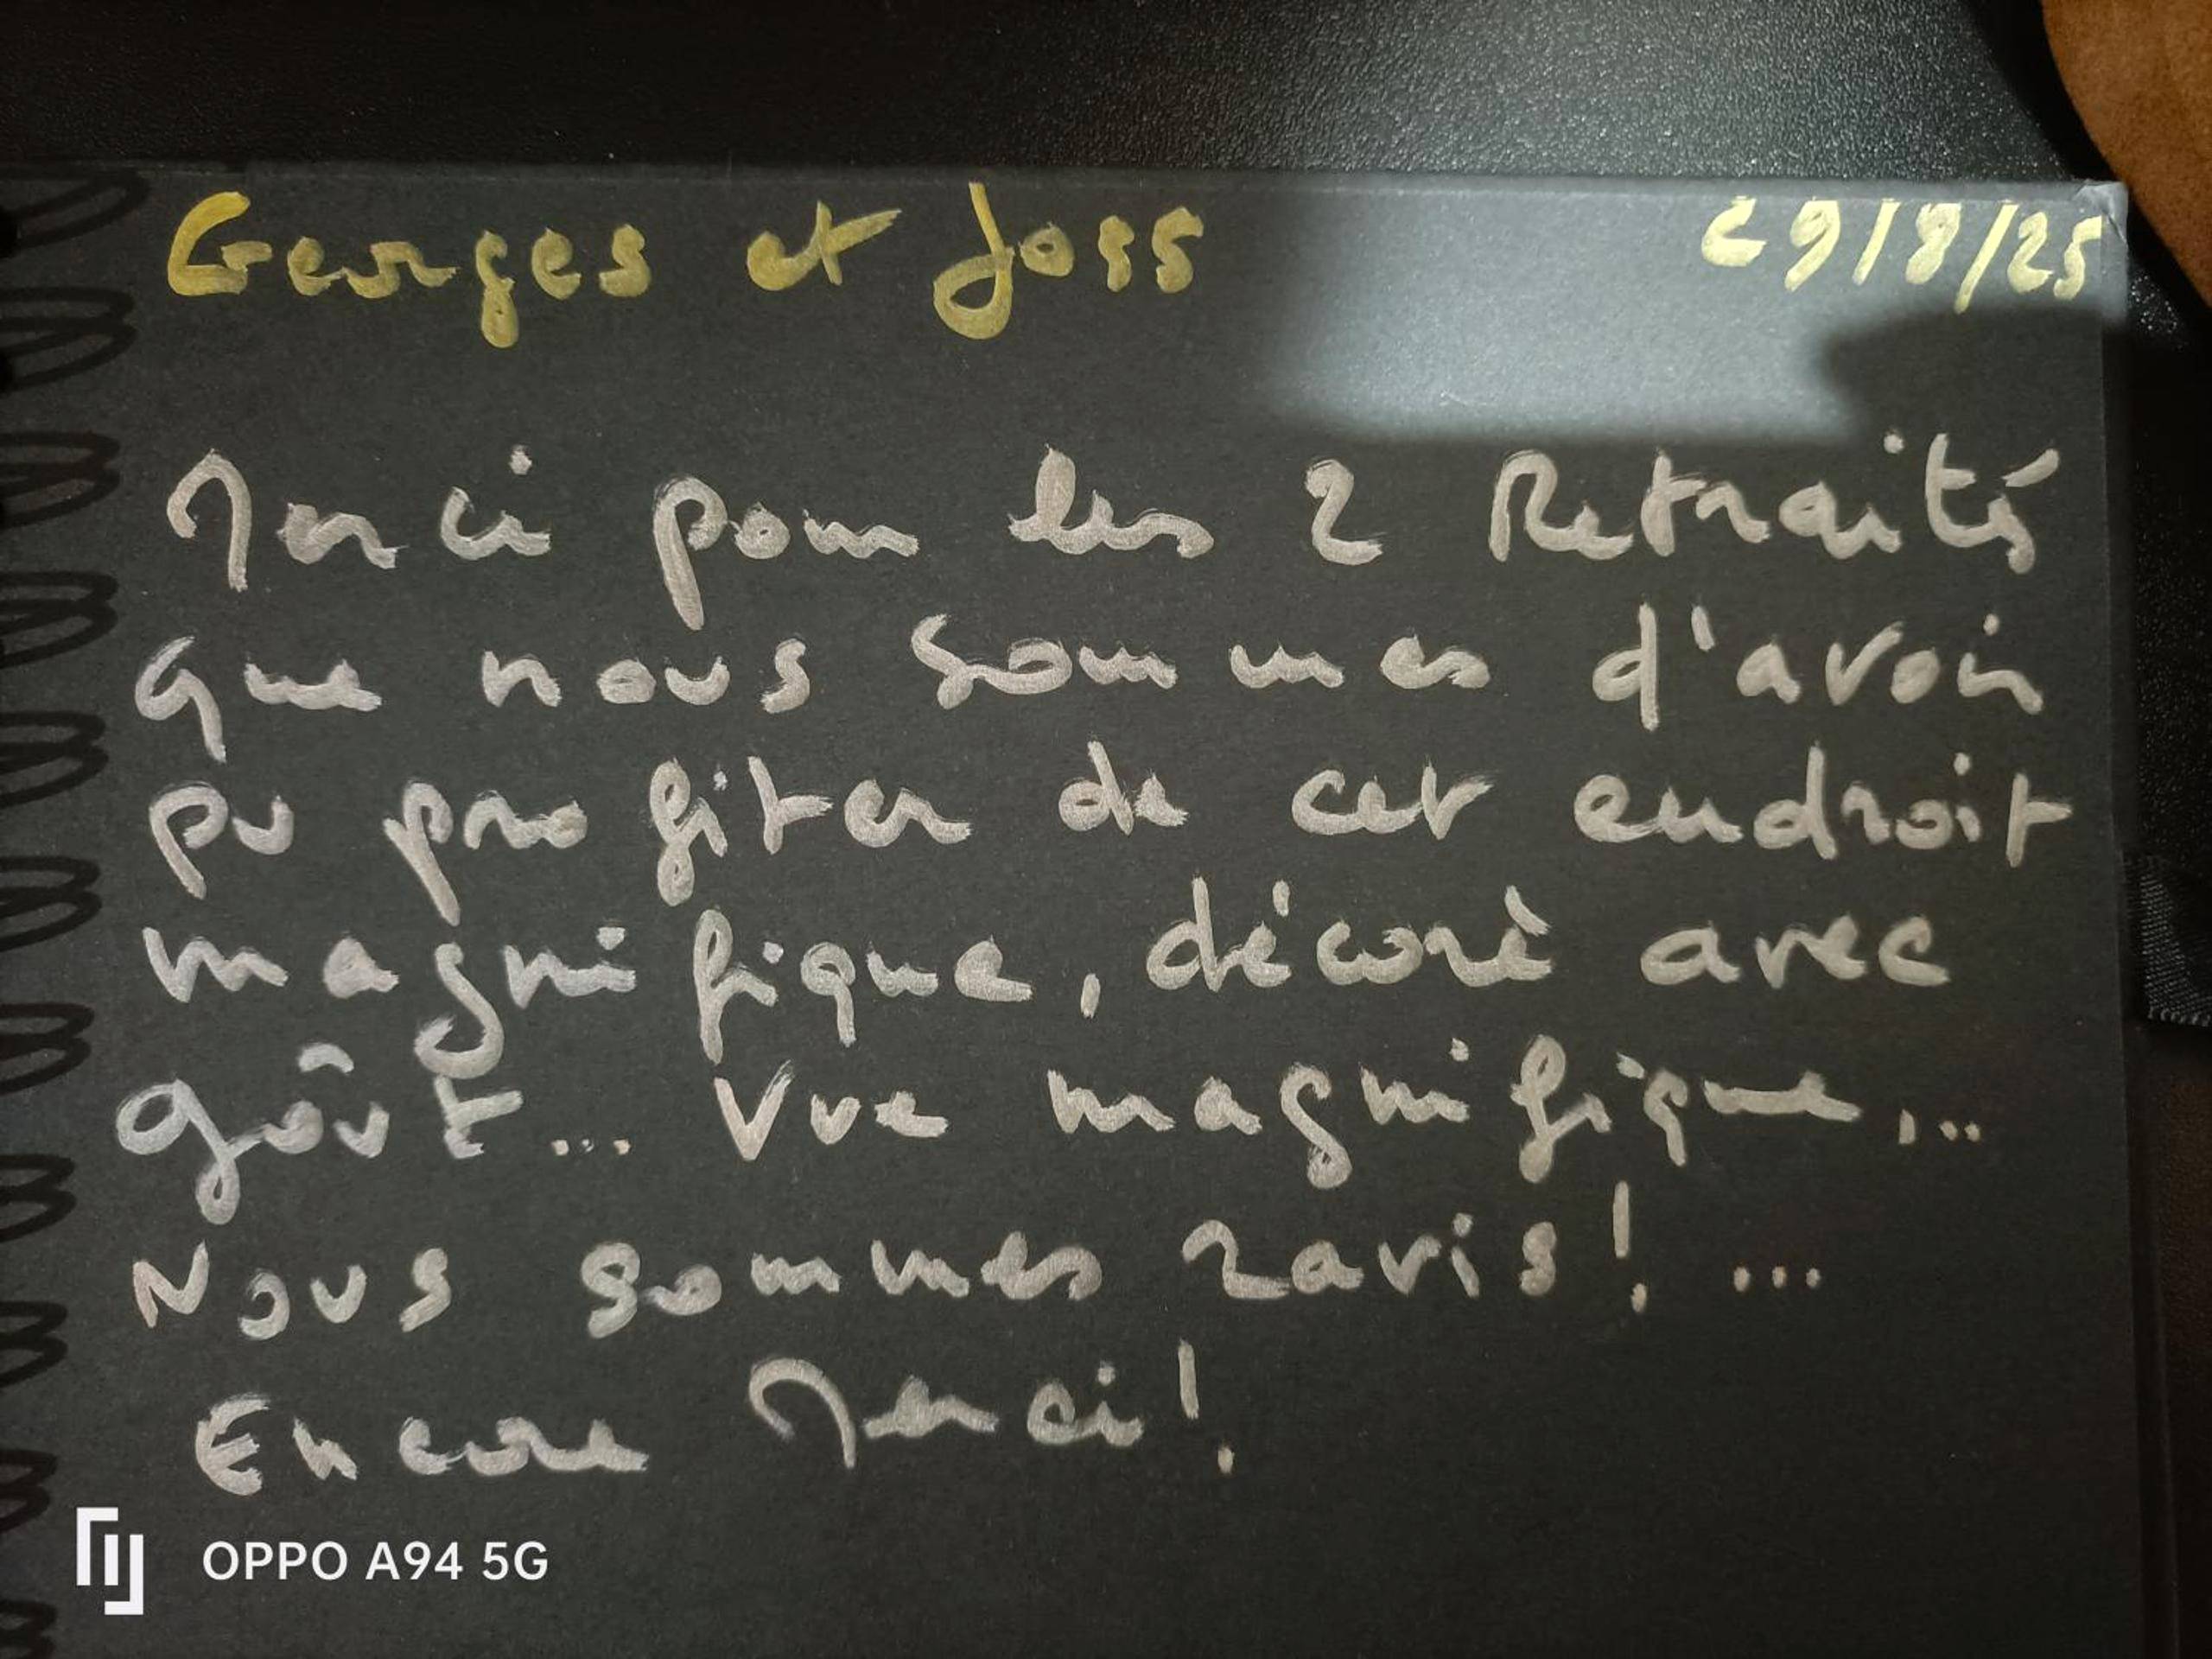 Georges et Joss
29/8/25
Merci pour les 2 Retraités
que nous sommes d'avoir
pu profiter de cet endroit
magnifique, décorè avec
goût... Vue magnifique...
Nous sommes ravis! ...
Encore Merci!
OPPO A94 5G